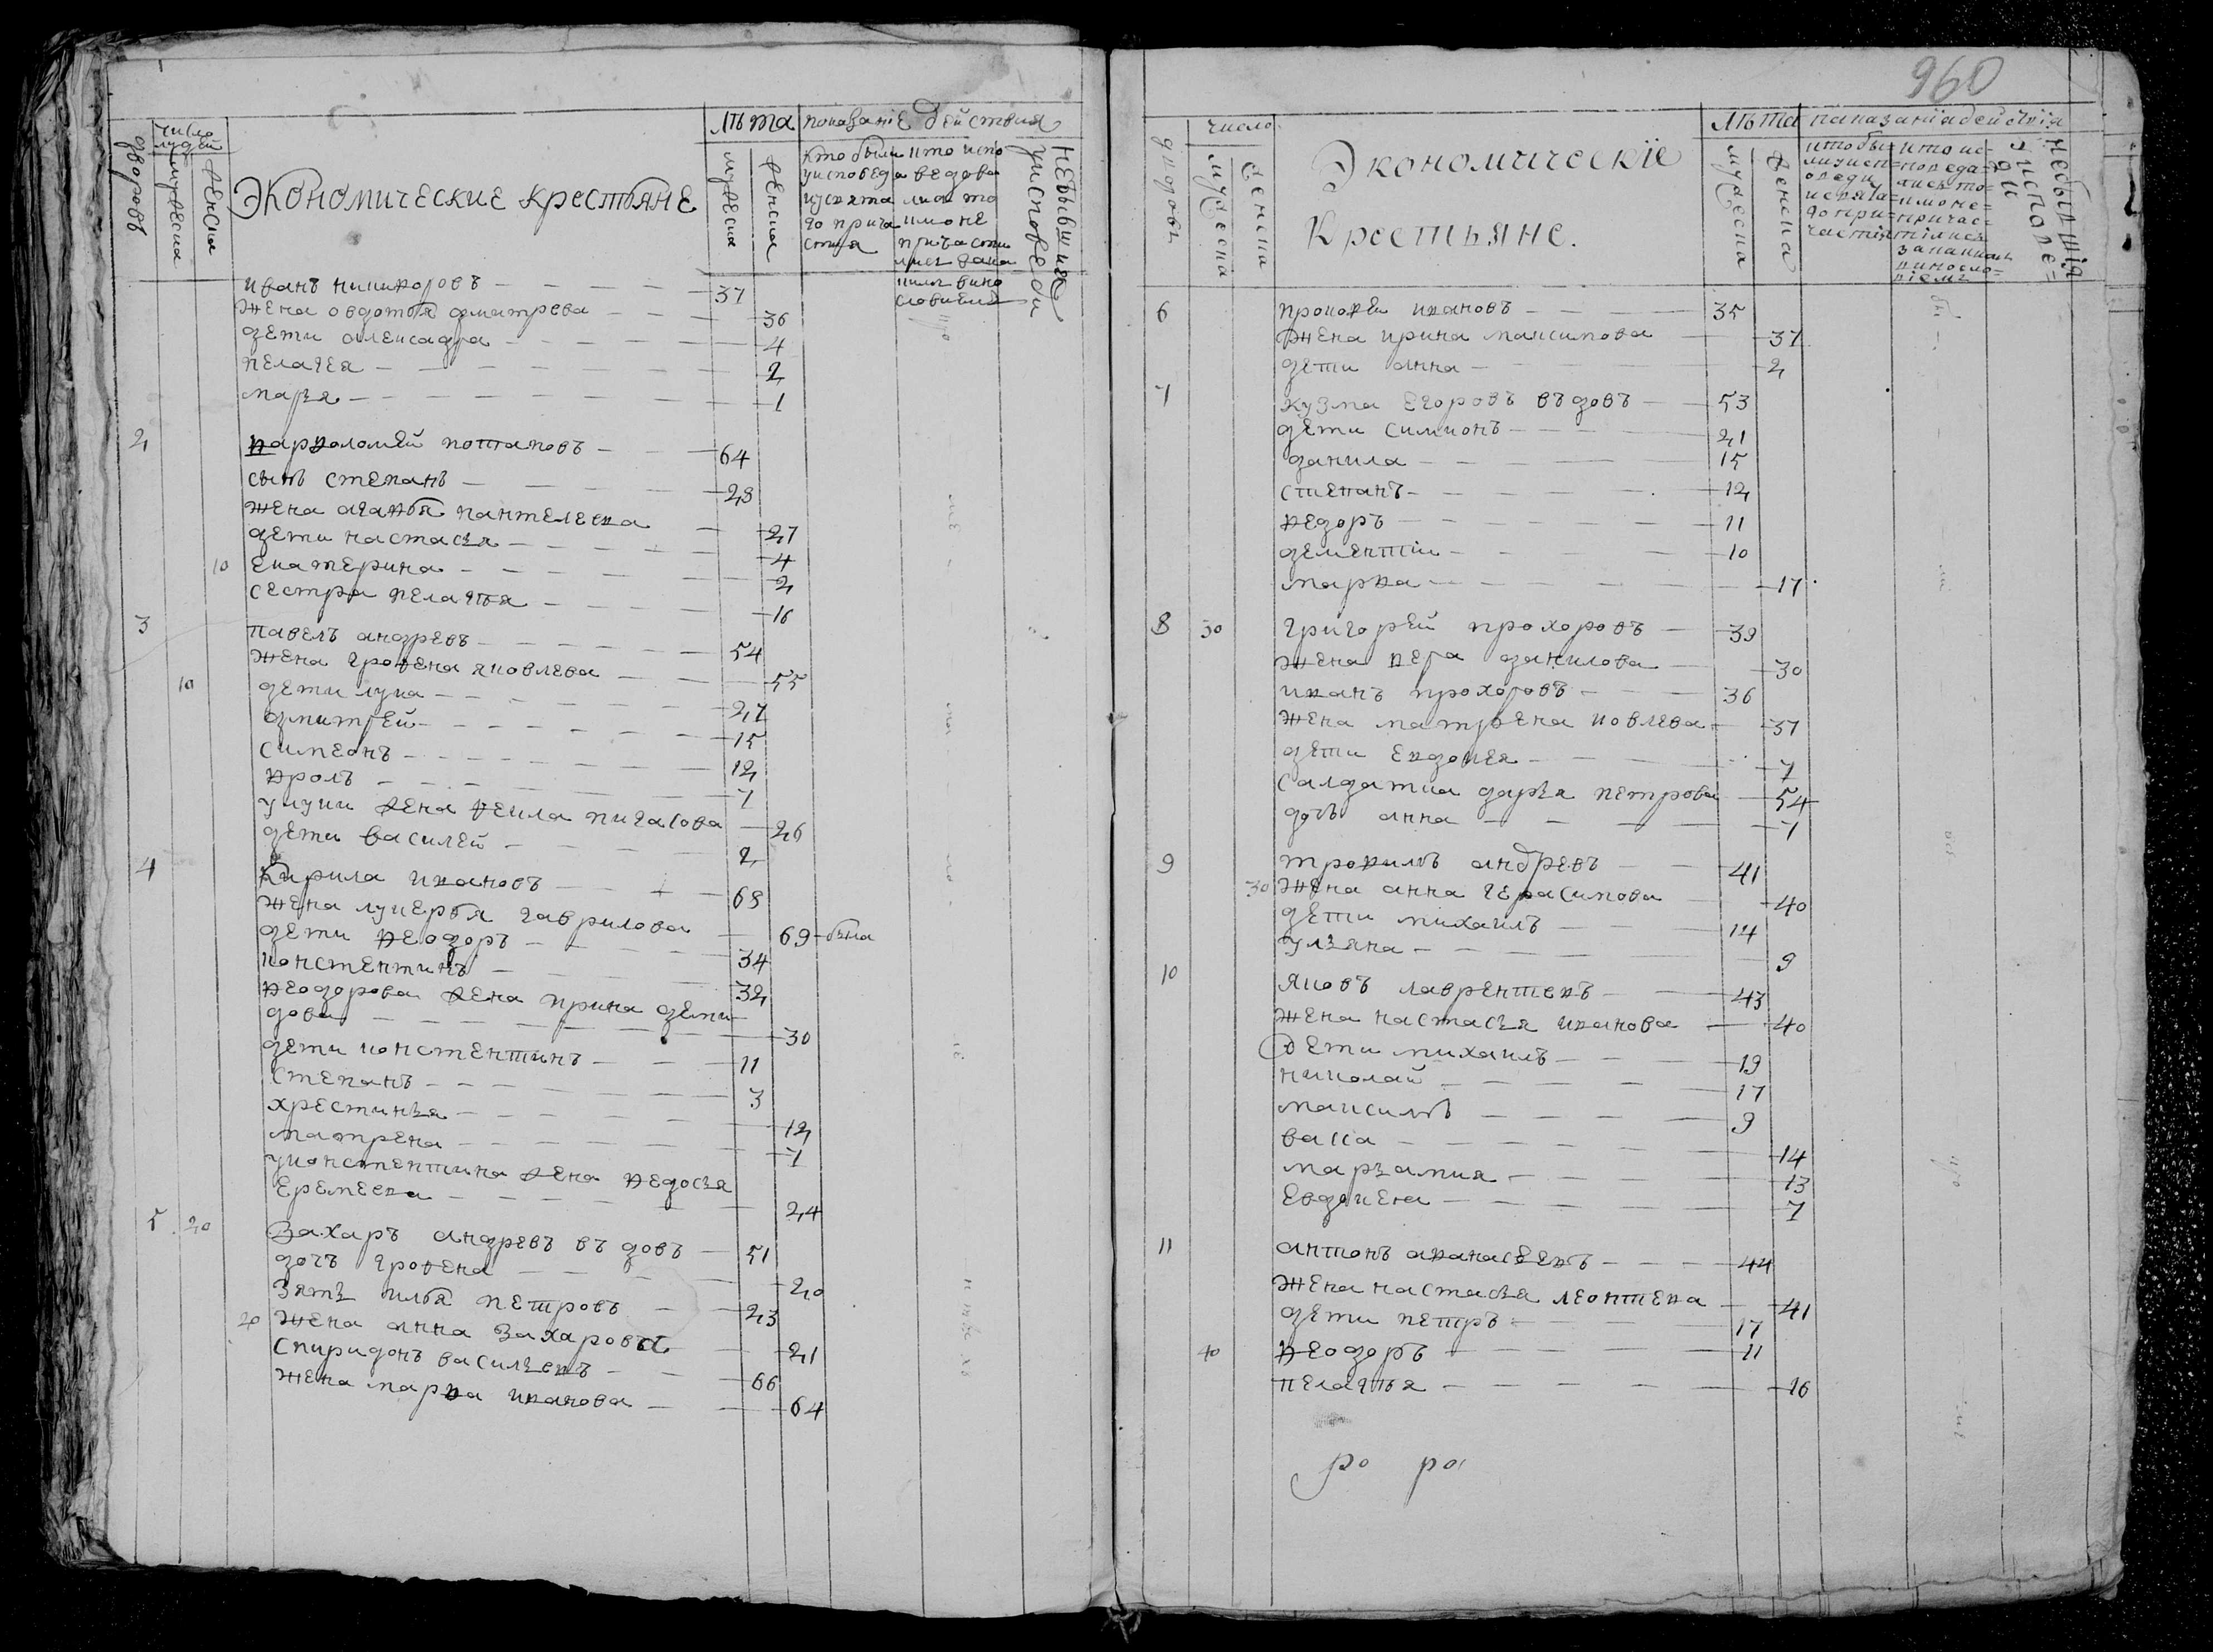 число людей
дворовъ
мужеска
женска
Экономические крестьяне
лѣта
мужеска
женска
показание действия
кто были у исповеди и у святаго причастия
кто исповедовались а не причастились за каким винословием
небывшия у исповеди
иванъ никифоровъ 37
жена овдотья дмитрева 36
дети александра 4
пелагея 2
марья 1
2 варфоломей потаповъ 64
сынъ степанъ 28
жена агафья пантелеева 27
дети настасья 4
10 екатерина 2
сестра пелагѣя 16
3 павелъ андревъ 54
жена грофена яковлева 55
10 дети лука 27
дмитрей 15
симеонъ 12
фролъ 7
у луки жена фекла пигасова 26
дети василей 2
4 Кирила ивановъ 68
жена лукерья гаврилова 69 была
дети феодоръ 34
констентинъ 32
феодорова жена ирина деми
дова 30
дети констентинъ 11
степанъ 3
хрестинья 12
матрена 7
у констентина жена федосья
еремеева 24
5 20 Захаръ андревъ въдовъ 51
дочь грофена 20
зять илья петровъ 23
20 жена анна захарова 21
спиридонъ васильевъ 66
жена марфа иванова 64
960
дворовъ
число
мужеска
женска
Экономическіе
Крестьяне.
лѣта
мужеска
женска
паказаніа действіа
небывшія у исповеди
6 прокофеи ивановъ 35
жена ирина максимова 37
дети анна 2
7 кузма егоровъ въдовъ 53
дети симионъ 21
данила 15
степанъ 12
федоръ 11
дементіи 10
марфа 17
8 30 григорей прохоровъ 39
жена вера данилова 30
иванъ прохоровъ 36
жена матрена иовлева 37
дети евдокея 7
салдатка дарья петрова 54
дочь анна 7
9 трофимъ андревъ 41
30 жена анна герасимова 40
дети михаилъ 14
ульяна 9
10 яковъ лаврентевъ 43
жена настасья иванова 40
дети михаилъ 19
николай 17
максимъ 9
васса 14
марьамия 13
евдокея 7
11 антонъ афанасьевъ 44
жена настасья леонтева 41
дети петръ 17
40 феодоръ 11
пелагѣя 16
ро ро